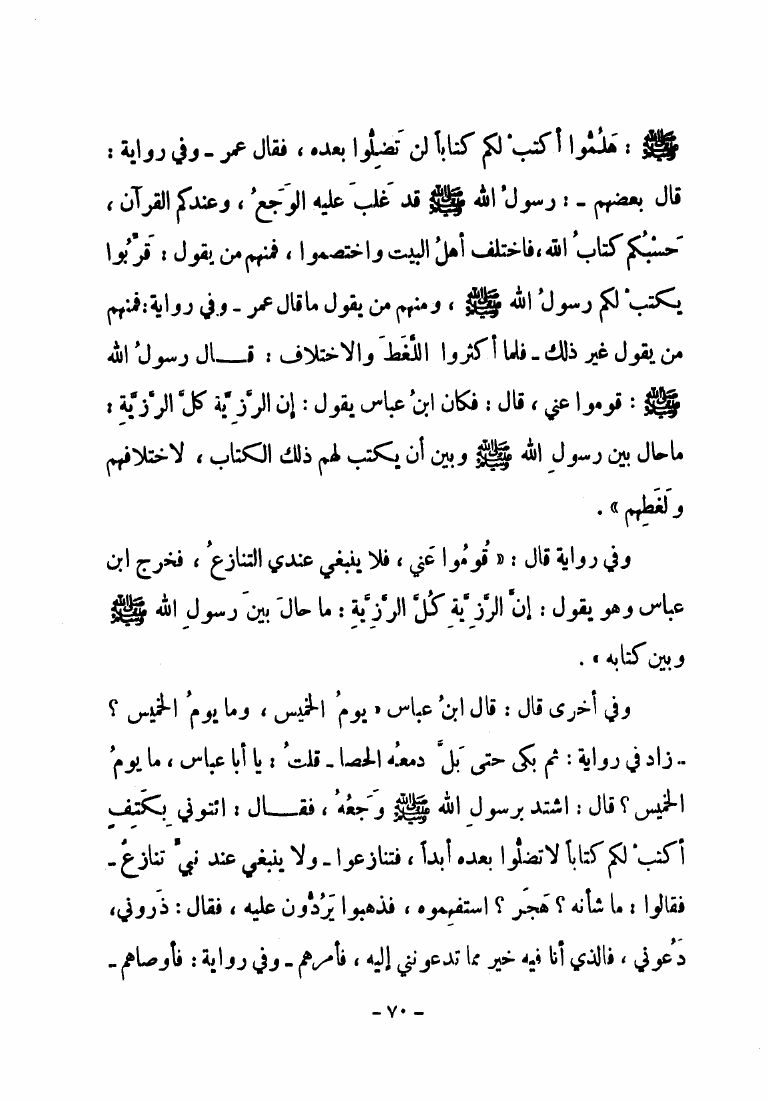 ﷺ : هَلُمُّوا أكتبْ لكم كتاباً لن تَضِلُّوا بعده ، فقال عمر ـ وفي رواية :
قال بعضهم ـ : رسولُ الله ﷺ قد غَلبَ عليه الوَجعُ ، وعندكم القرآن ،
حَسْبُكم كتابُ الله ،فاختلف أهلُ البيت واختصموا ، فمنهم من يقول : قَرِّبُوا
يكتبْ لكم رسولُ الله ﷺ ، ومنهم من يقول ماقال عمر ـ وفي رواية:فمنهم
من يقول غير ذلك ـ فلما أكثروا اللَّغَطَ والاختلاف : قـــال رسولُ الله
ﷺ : قوموا عني ، قال : فكان ابنُ عباس يقول : إن الرَّزِيَّة كلَّ الرَّزِيَّةِ :
ماحال بين رسولِ الله ﷺ وبين أن يكتب لهم ذلك الكتاب ، لاختلافهم
ولَغَطِهم » .
وفي رواية قال : « قُومُوا عَني ، فلا ينبغي عندي التنازعُ ، فخرج ابن
عباس وهو يقول : إنَّ الرَّزِيَّةِ كُلَّ الرَّزِيَّةِ : ما حالَ بينَ رسولِ الله ﷺ
وبين كتابه » .
وفي أخرى قال : قال ابنُ عباس « يومُ الخميس ، وما يومُ الخميس ؟
ـ زاد في رواية : ثم بكى حتى بَلَّ دمعُه الحصا ـ قلتُ : يا أبا عباس ، ما يومُ
الخميس ؟ قال : اشتد برسولِ الله ﷺ وَجَعُهُ ، فقـــال : ائتوني بِكَتِفٍ
أكتبْ لكم كتاباً لاتضلُّوا بعده أبداً ، فتنازعوا ـ ولا ينبغي عند نبيٍّ تنازعٌ ـ
فقالوا : ما شأنه ؟ هَجَر ؟ استفهِموه ، فذهبوا يَرُدُّون عليه ، فقال : ذَروني،
دَعُوني ، فالذي أنا فيه خير مما تدعونني إليه ، فأمرهم ـ وفي رواية : فأوصاهم ـ
ـ ٧٠ ـ